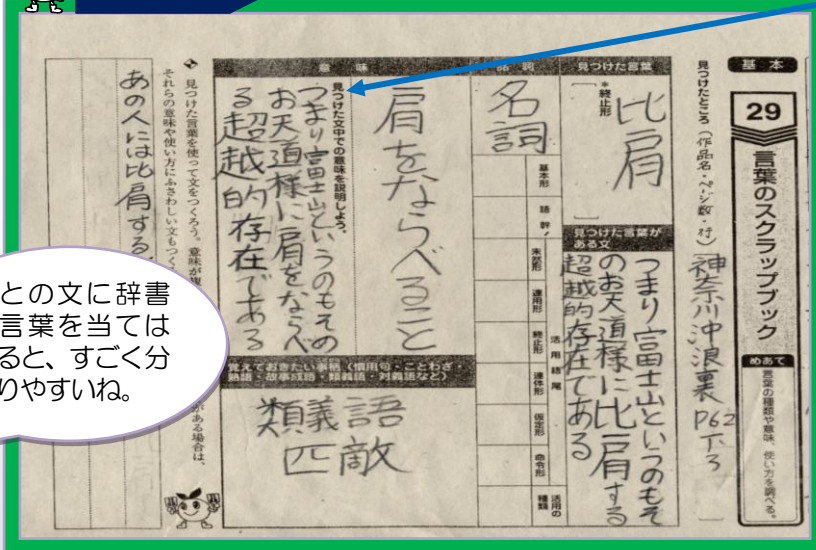 基本
29
言葉のスクラップブック
めあて
言葉の種類や意味、使い方を調べる。
見つけたところ(作品名・ページ数・行)
神奈川沖浪裏 P62下3
見つけた言葉
比肩
*終止形
見つけた言葉が
ある文
つまり富士山というのもそ
のお天道様に比肩する
超越的存在である
品詞
名詞
基本形
語幹
活用語尾
未然形
連用形
終止形
連体形
仮定形
命令形
活用の
種類
意味
肩をならべること
見つけた文中での意味を説明しよう。
つまり富士山というのもその
お天道様に肩をならべ
る超越的存在である
覚えておきたい事柄(慣用句・ことわざ・
熟語・故事成語・類義語・対義語など)
類義語
匹敵
見つけた言葉を使って文をつくろう。意味が複
がある場合は、
それらの意味や使い方にふさわしい文もつく
あの人には比肩する
との文に辞書
言葉を当ては
ると、すごく分
りやすいね。